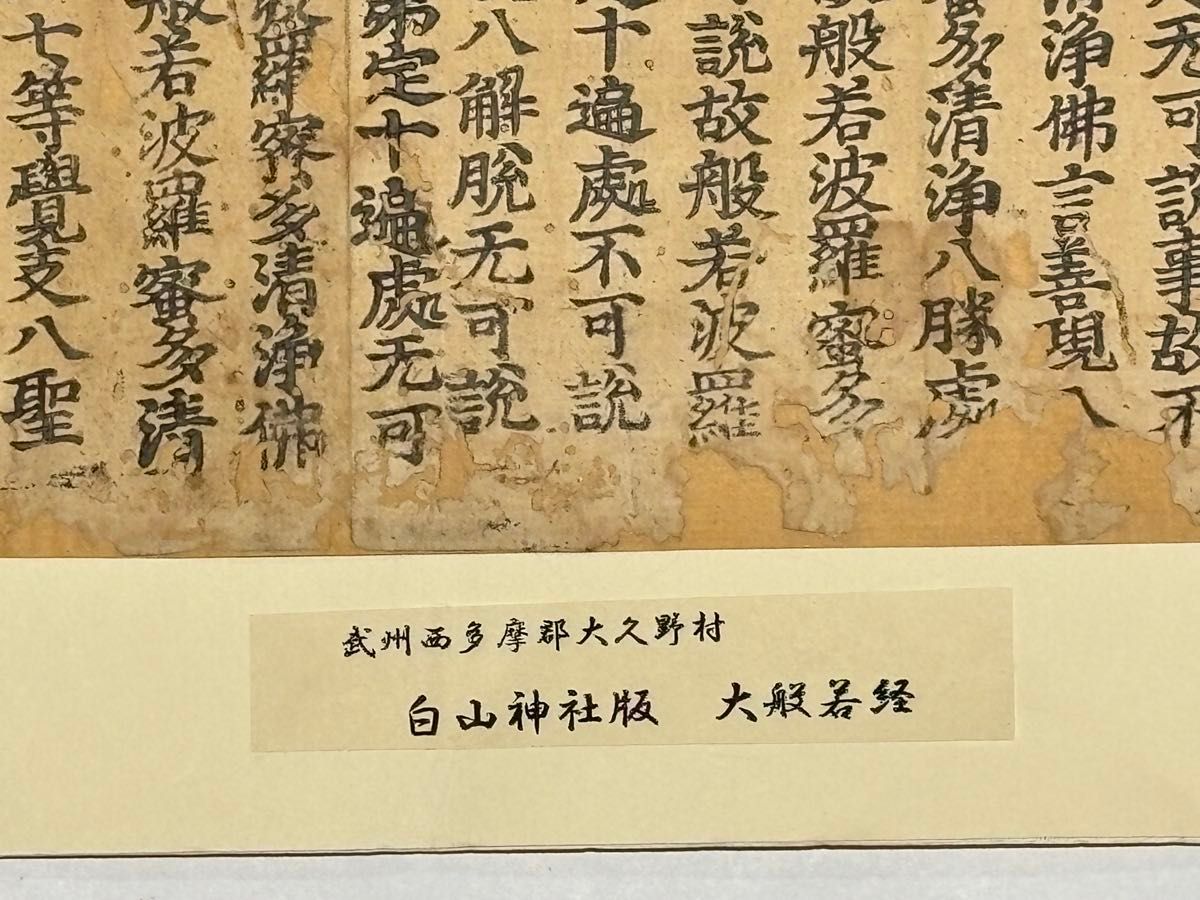 无可說事故不
清浄佛言善現八
蜜多清浄八勝處
般若波羅蜜多
說故般若波羅
十遍處不可說
八解脫无可說
第定十遍處无可
羅蜜多清浄佛
般若波羅蜜多清
七等覺支八聖
武州西多摩郡大久野村
白山神社版　大般若経